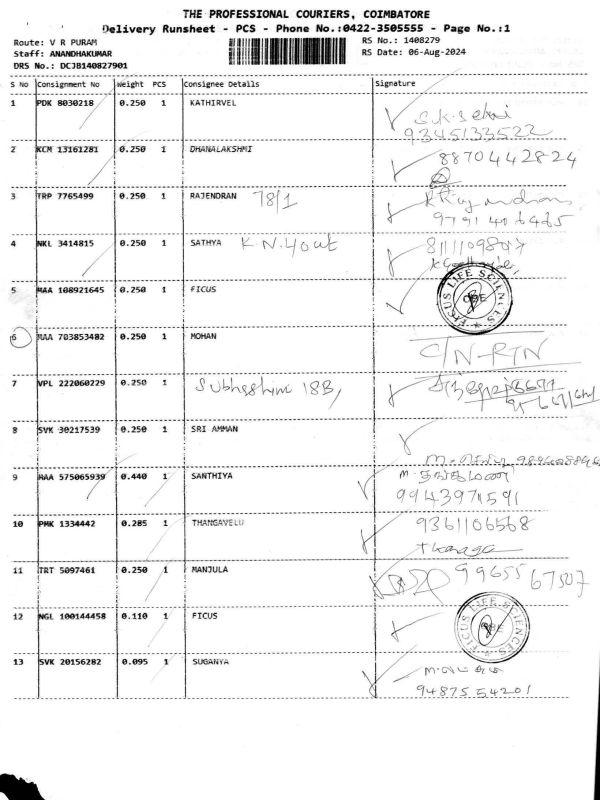 THE PROFESSIONAL COURIERS, COIMBATORE
Delivery Runsheet - PCS - Phone No.:0422-3505555 - Page No.:1
Route: V R PURAM
Staff: ANANDHAKUMAR
DRS No.: DCJB140827901
RS No.: 1408279
RS Date: 06-Aug-2024
S No Consignment No Weight PCS Consignee Details Signature
1 PDK 8030218 0.250 1 KATHIRVEL
9345133522
2 KCM 13161281 0.250 1 DHANALAKSHMI 8870442824
3 TRP 7765499 0.250 1 RAJENDRAN 78/1
9791406465
4 NKL 3414815 0.250 1 SATHYA
5 MAA 108921645 0.250 1 FICUS
FICUS LIFE SCIENCES CBE
6 MAA 703853482 0.250 1 MOHAN C/N-RTN
7 VPL 222060229 0.250 1 Subhashini 18B,
8 SVK 30217539 0.250 1 SRI AMMAN
9 MAA 575065939 0.440 1 SANTHIYA M. தங்கமணி
9943971591
10 PMK 1334442 0.285 1 THANGAVELU 9361106568
Thanga
11 TRT 5097461 0.250 1 MANJULA 99655 67507
12 NGL 100144458 0.110 1 FICUS
FICUS LIFE SCIENCES CBE
13 SVK 20156282 0.095 1 SUGANYA
9487554201